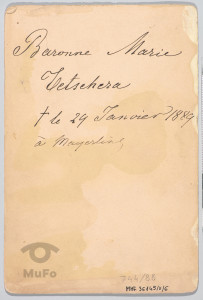 Baronne Marie
Vetschera
† le 29 Janvier 1889
à Mayerling
MuFo
744/88